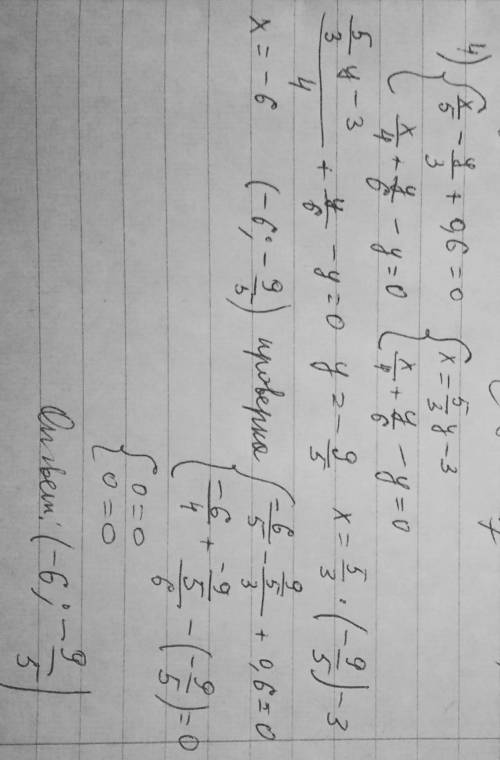 4) { x/5 - y/3 + 0,6 = 0 { x = 5/3 y - 3
{ x/4 + y/6 - y = 0 { x/4 + y/6 - y = 0
(5/3 y - 3)/4 + y/6 - y = 0 y = - 9/5 x = 5/3 · (-9/5) - 3
x = -6 (-6; -9/5) проверка { -6/5 - (9/5)/3 + 0,6 = 0
{ -6/4 + (-9/5)/6 - (-9/5) = 0
{ 0 = 0
{ 0 = 0
Ответ: (-6; -9/5)